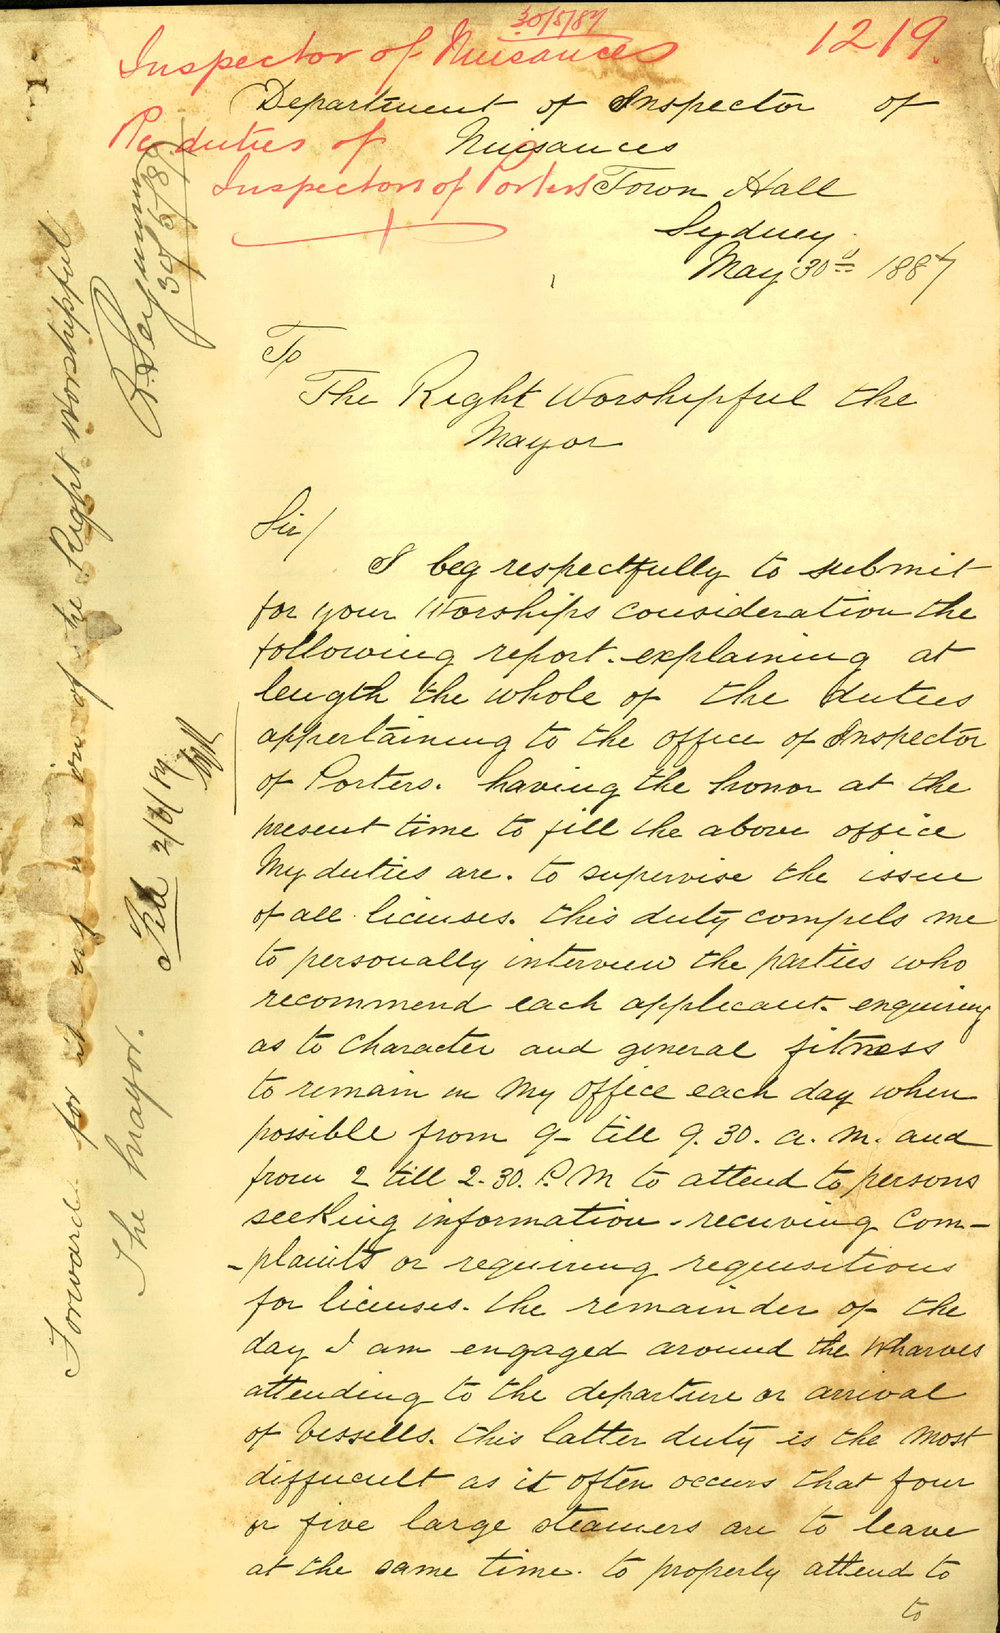 30/5/87
Inspector of Nuisances
1219.
Department of Inspector of
Nuisances
Re duties of
Inspectors of Porters
Town Hall
Sydney
May 30th 1887
To
The Right Worshipful the
Mayor
Sir/
I beg respectfully to submit
for your Worships consideration the
following report. explaining at
length the whole of the duties
appertaining to the office of Inspector
of Porters. having the honor at the
present time to fill the above office
My duties are. to supervise the issue
of all licenses. this duty compels me
to personally interview the parties who
recommend each applicant. enquiring
as to Character and general fitness
to remain in my office each day when
possible from 9- till 9.30. a.m. and
from 2 till 2-30. P.M to attend to persons
seeking information. receiving Com-
-plaints or requiring requisitions
for licenses. the remainder of the
day I am engaged around the Wharves
attending to the departure or arrival
of Vessells. this latter duty is the most
difficult as it often occurs that four
or five large steamers are to leave
at the same time. to properly attend to
to
Forward for the of the Right Worshipful
The Mayor.
R. Seymour
30/5/87
2/6/87